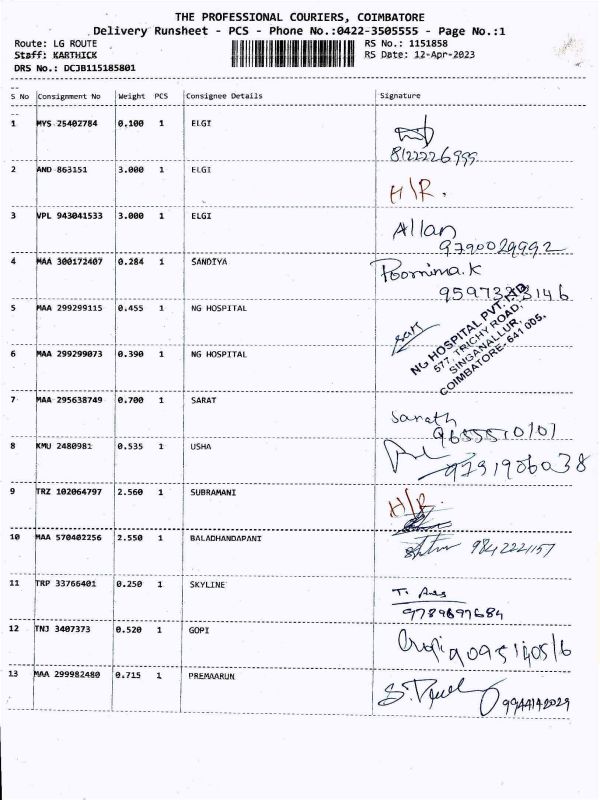 THE PROFESSIONAL COURIERS, COIMBATORE
Delivery Runsheet - PCS - Phone No.:0422-3505555 - Page No.:1
Route: LG ROUTE RS No.: 1151858
Staff: KARTHICK RS Date: 12-Apr-2023
DRS No.: DCJB115185801
S No Consignment No Weight PCS Consignee Details Signature
1 MYS 25402784 0.100 1 ELGI
8122226999
2 AND 863151 3.000 1 ELGI H/R.
3 VPL 943041533 3.000 1 ELGI Allan
9790029992
4 MAA 300172407 0.284 1 SANDIYA Poornima.K
9597383146
5 MAA 299299115 0.455 1 NG HOSPITAL
NG HOSPITAL PVT. LTD
577, TRICHY ROAD,
SINGANALLUR,
COIMBATORE- 641 005.
6 MAA 299299073 0.390 1 NG HOSPITAL
7 MAA 295638749 0.700 1 SARAT Sarath
9655510101
8 KMU 2480981 0.535 1 USHA
9 TRZ 102064797 2.560 1 SUBRAMANI H/R.
10 MAA 570402256 2.550 1 BALADHANDAPANI
11 TRP 33766401 0.250 1 SKYLINE
12 TNJ 3407373 0.520 1 GOPI Gopi
13 MAA 299982480 0.715 1 PREMAARUN
9944142029